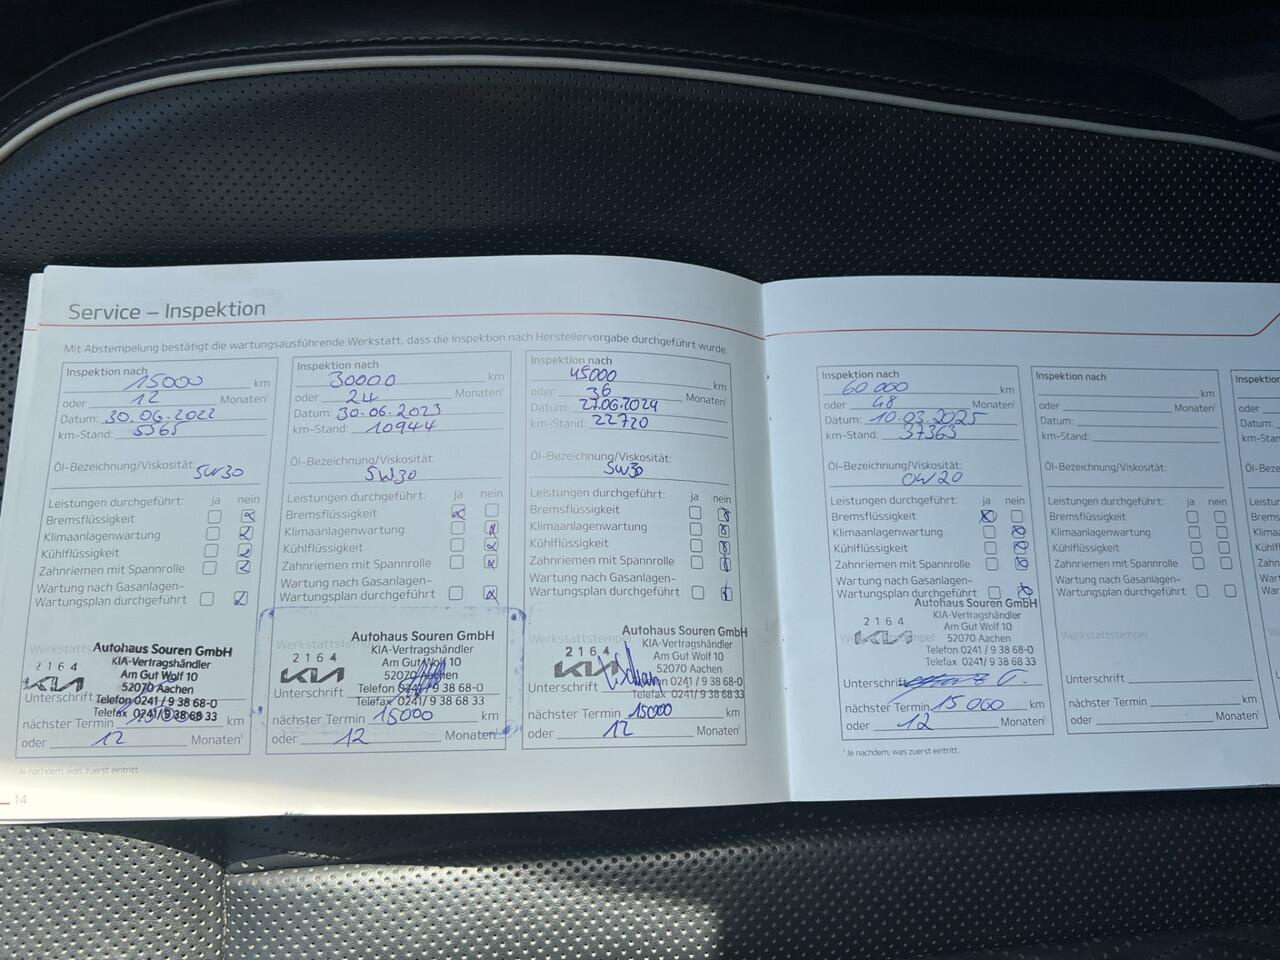 Service – Inspektion
Mit Abstempelung bestätigt die wartungsausführende Werkstatt, dass die Inspektion nach Herstellervorgabe durchgeführt wurde.
Inspektion nach
15000 km
oder 12 Monaten¹
Datum: 30.06.2022
km-Stand: 5565
Öl-Bezeichnung/Viskosität:
5W30
Leistungen durchgeführt: ja nein
Bremsflüssigkeit
Klimaanlagenwartung
Kühlflüssigkeit
Zahnriemen mit Spannrolle
Wartung nach Gasanlagen-
Wartungsplan durchgeführt
Werkstattstempel
Autohaus Souren GmbH
KIA-Vertragshändler
Am Gut Wolf 10
52070 Aachen
Telefon 0241 / 9 38 68-0
Telefax 0241/ 9 38 68 33
2164
KIA
Unterschrift
nächster Termin 15000 km
oder 12 Monaten¹
¹Je nachdem, was zuerst eintritt.
14
Inspektion nach
30000 km
oder 24 Monaten¹
Datum: 30.06.2023
km-Stand: 10944
Öl-Bezeichnung/Viskosität:
5W30
Leistungen durchgeführt: ja nein
Bremsflüssigkeit
Klimaanlagenwartung
Kühlflüssigkeit
Zahnriemen mit Spannrolle
Wartung nach Gasanlagen-
Wartungsplan durchgeführt
Werkstattstempel
Autohaus Souren GmbH
KIA-Vertragshändler
Am Gut Wolf 10
52070 Aachen
Telefon 0241 / 9 38 68-0
Telefax 0241/ 9 38 68 33
2164
KIA
Unterschrift
nächster Termin 15000 km
oder 12 Monaten¹
Inspektion nach
45000 km
oder 36 Monaten¹
Datum: 27.06.2024
km-Stand: 22720
Öl-Bezeichnung/Viskosität:
5W30
Leistungen durchgeführt: ja nein
Bremsflüssigkeit
Klimaanlagenwartung
Kühlflüssigkeit
Zahnriemen mit Spannrolle
Wartung nach Gasanlagen-
Wartungsplan durchgeführt
Werkstattstempel
Autohaus Souren GmbH
KIA-Vertragshändler
Am Gut Wolf 10
52070 Aachen
Telefon 0241 / 9 38 68-0
Telefax 0241/ 9 38 68 33
2164
KIA
Unterschrift
nächster Termin 15000 km
oder 12 Monaten¹
Inspektion nach
60.000 km
oder 48 Monaten¹
Datum: 10.03.2025
km-Stand: 37363
Öl-Bezeichnung/Viskosität:
0W20
Leistungen durchgeführt: ja nein
Bremsflüssigkeit
Klimaanlagenwartung
Kühlflüssigkeit
Zahnriemen mit Spannrolle
Wartung nach Gasanlagen-
Wartungsplan durchgeführt
Werkstattstempel
Autohaus Souren GmbH
KIA-Vertragshändler
Am Gut Wolf 10
52070 Aachen
Telefon 0241 / 9 38 68-0
Telefax 0241/ 9 38 68 33
2164
KIA
Unterschrift
nächster Termin 15 000 km
oder 12 Monaten¹
¹Je nachdem, was zuerst eintritt.
Inspektion nach
km
oder Monaten¹
Datum:
km-Stand:
Öl-Bezeichnung/Viskosität:
Leistungen durchgeführt: ja nein
Bremsflüssigkeit
Klimaanlagenwartung
Kühlflüssigkeit
Zahnriemen mit Spannrolle
Wartung nach Gasanlagen-
Wartungsplan durchgeführt
Werkstattstempel
Unterschrift
nächster Termin km
oder Monaten¹
Inspektion
oder
Datum:
km-Stan
Öl-Beze
Leistun
Bremsf
Klimaa
Kühlflü
Zahn
Wart
War